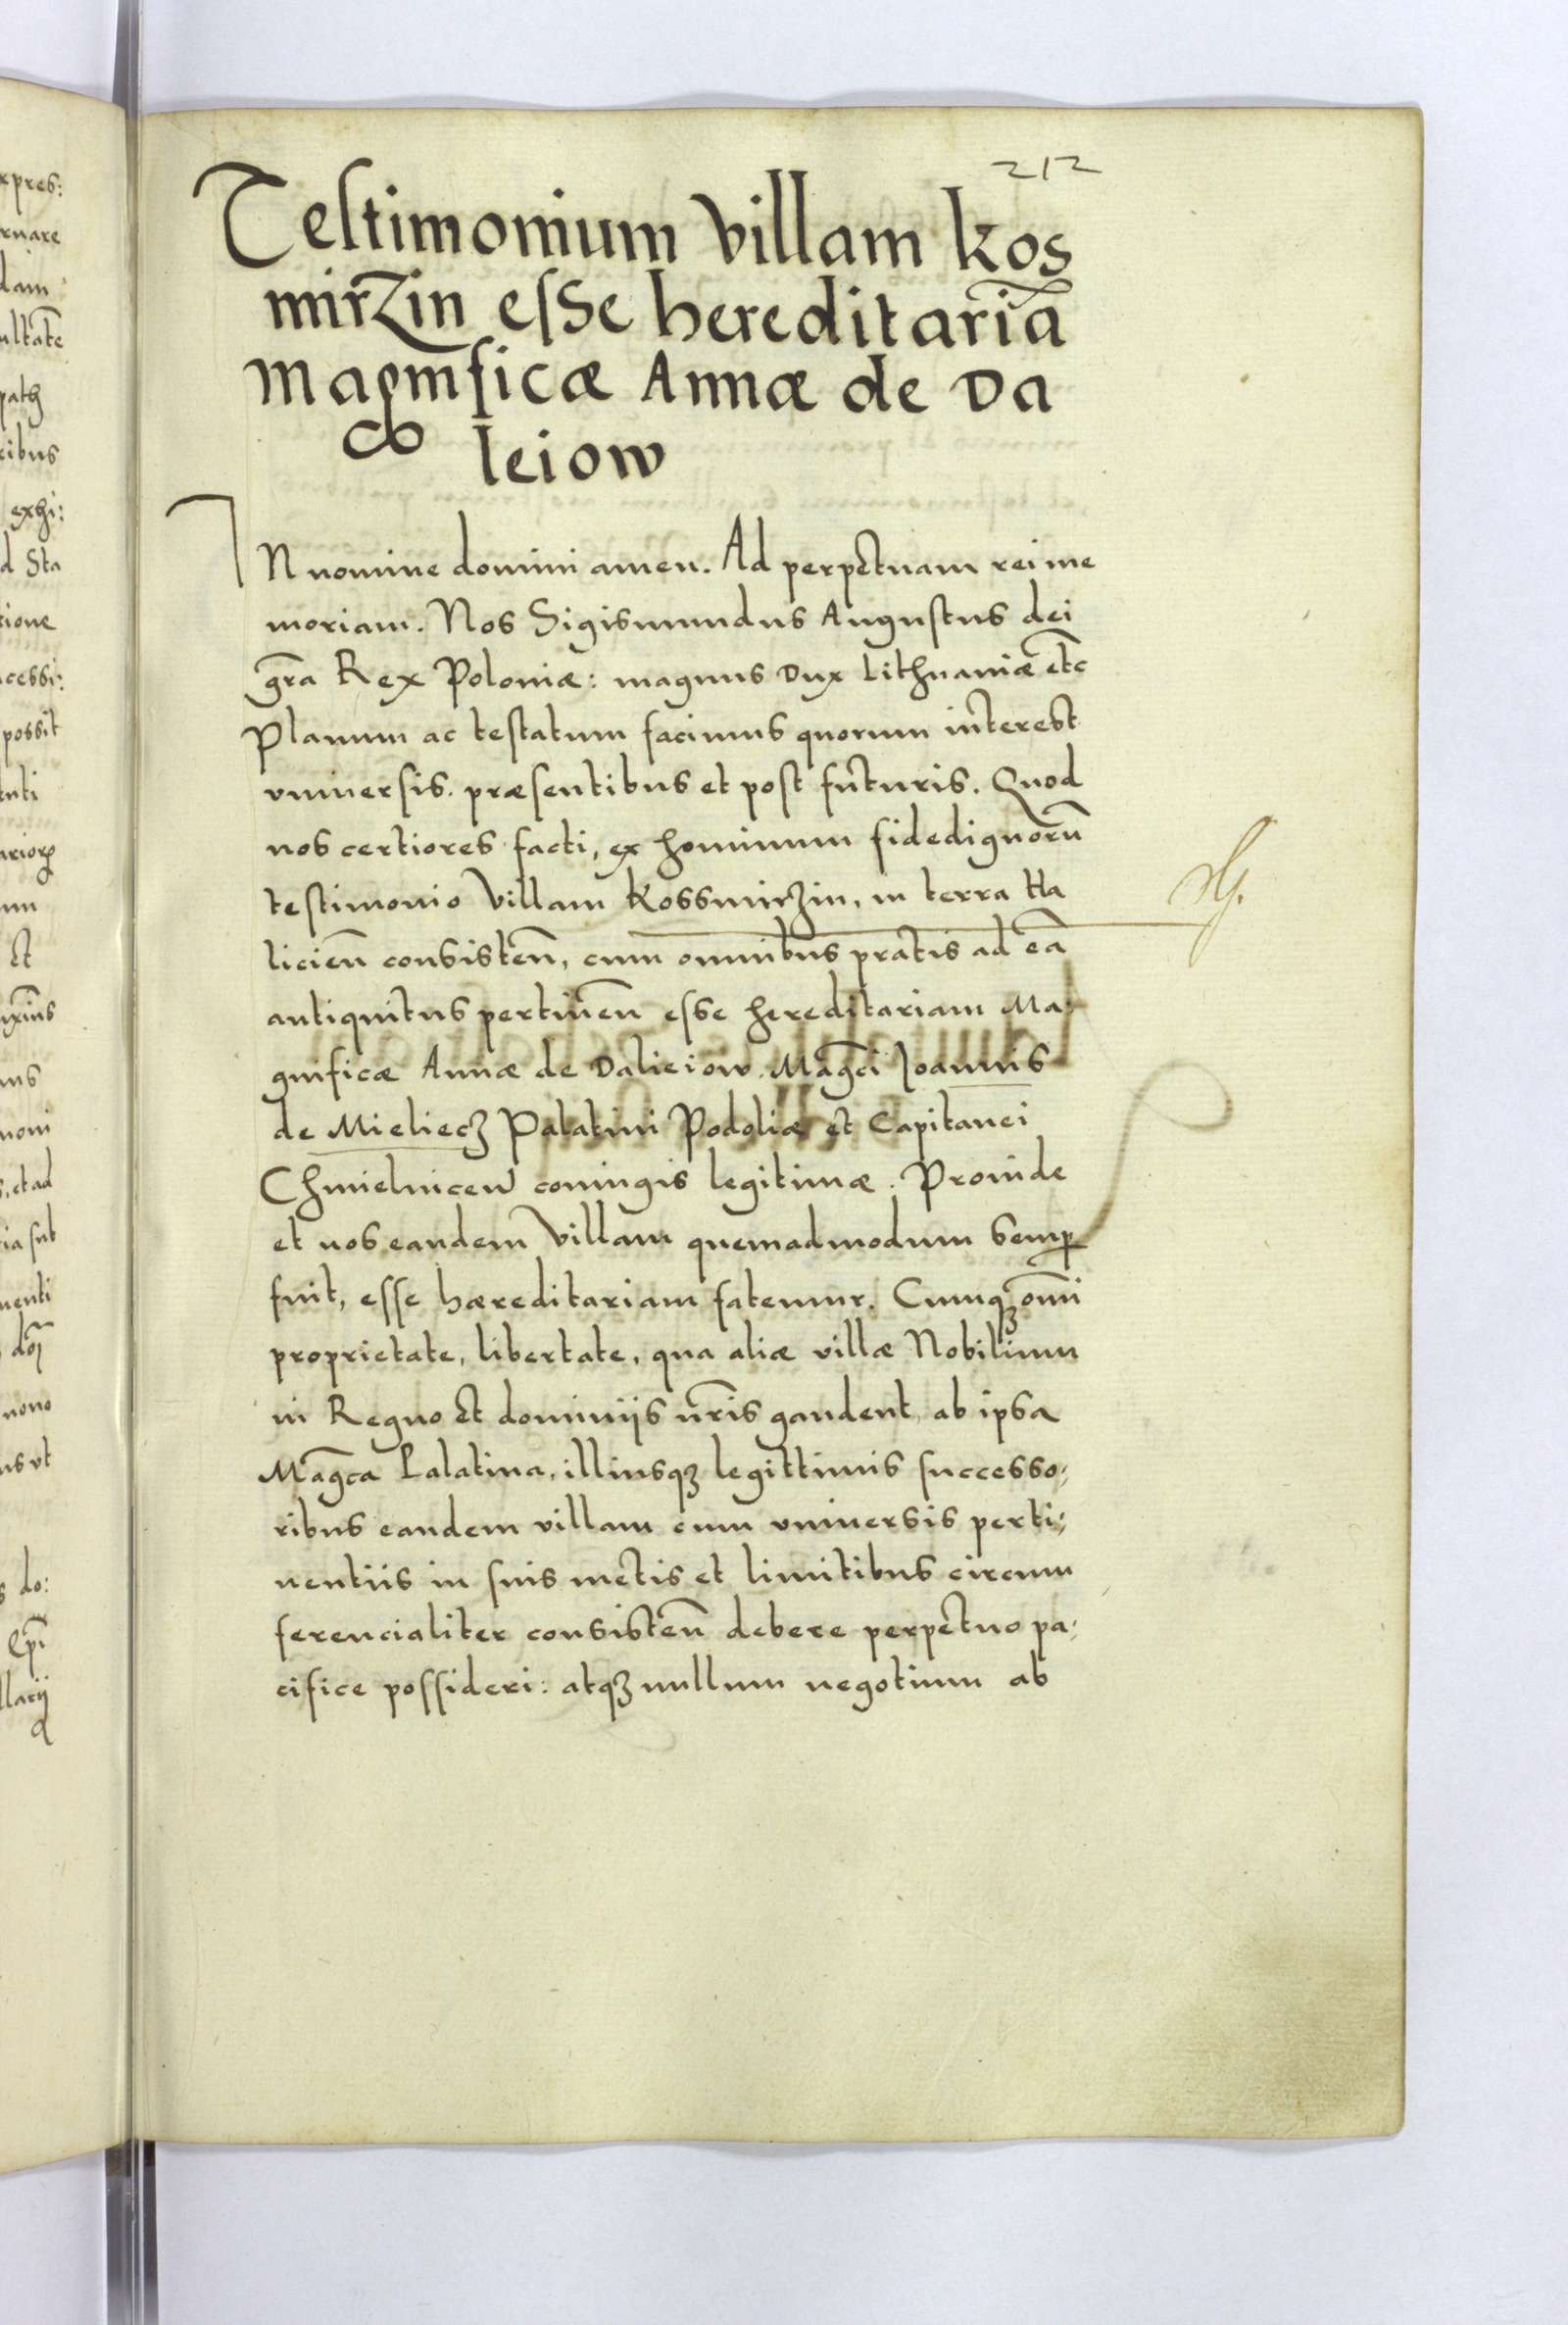 212
Testimonium Villam Kos
mirzin esse hereditariã
Magnificæ Annæ de Da
leiow
IN nomine domini amen. Ad perpetuam rei me
moriam. Nos Sigismundus Augustus dei
gr̃a Rex Poloniæ: magnus Dux Lithuaniæ etc̃
Planum ac testatum facimus quorum interest
vniuersis. præsentibus et post futuris. Quod
nos certiores facti, ex hominum fidedignorũ
testimonio Villam Kossmirzin, in terra Ha
licień consisteñ, cum omnibus pratis ad eã
antiquitus pertineñ esse hereditariam Ma:
gnificæ Annæ de Dalieiow. Mag̃ci Joannis
de Mieliecz Palatini Podoliæ et Capitanei
Chmielniceñ coniugis legitimæ. Proinde
et nos eandem Villam quemadmodum semꝑ
fuit, esse hæreditariam fatemur. Cumqꝫ om̃i
proprietate, libertate, qua aliæ villæ Nobilium
in Regno et dominijs nr̃is gaudent, ab ipsa
Mag̃ca Palatina, illiusqꝫ legittimis successo:
ribus eandem villam cum vniuersis perti:
nentiis in suis metis et limitibus circum
ferencialiter consisteñ debere perpetuo pa:
cifice possideri: atqꝫ nullum negotium ab